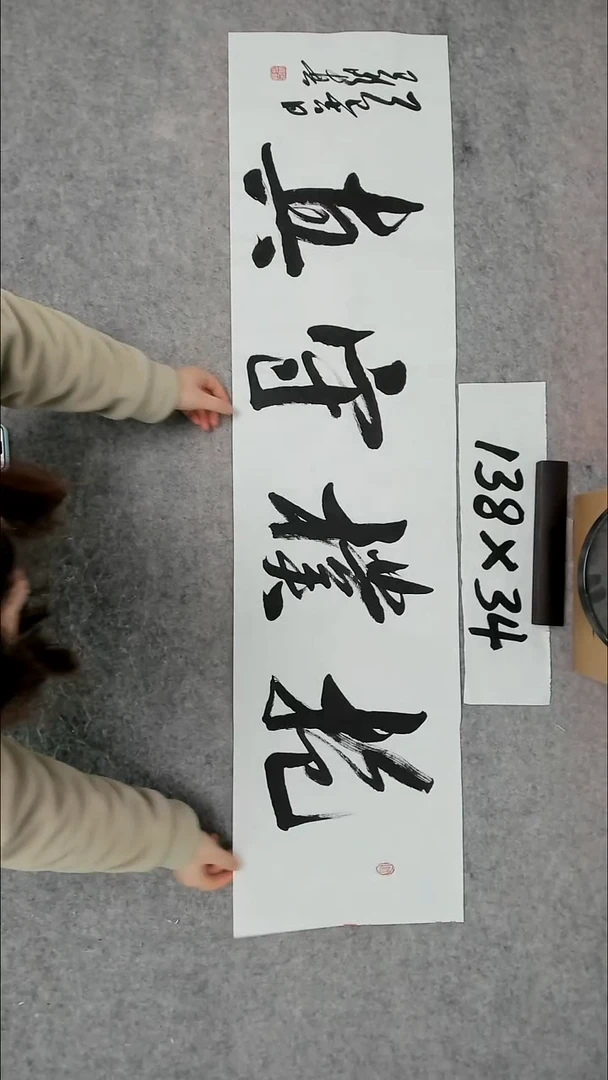 抱樸守真
138×34